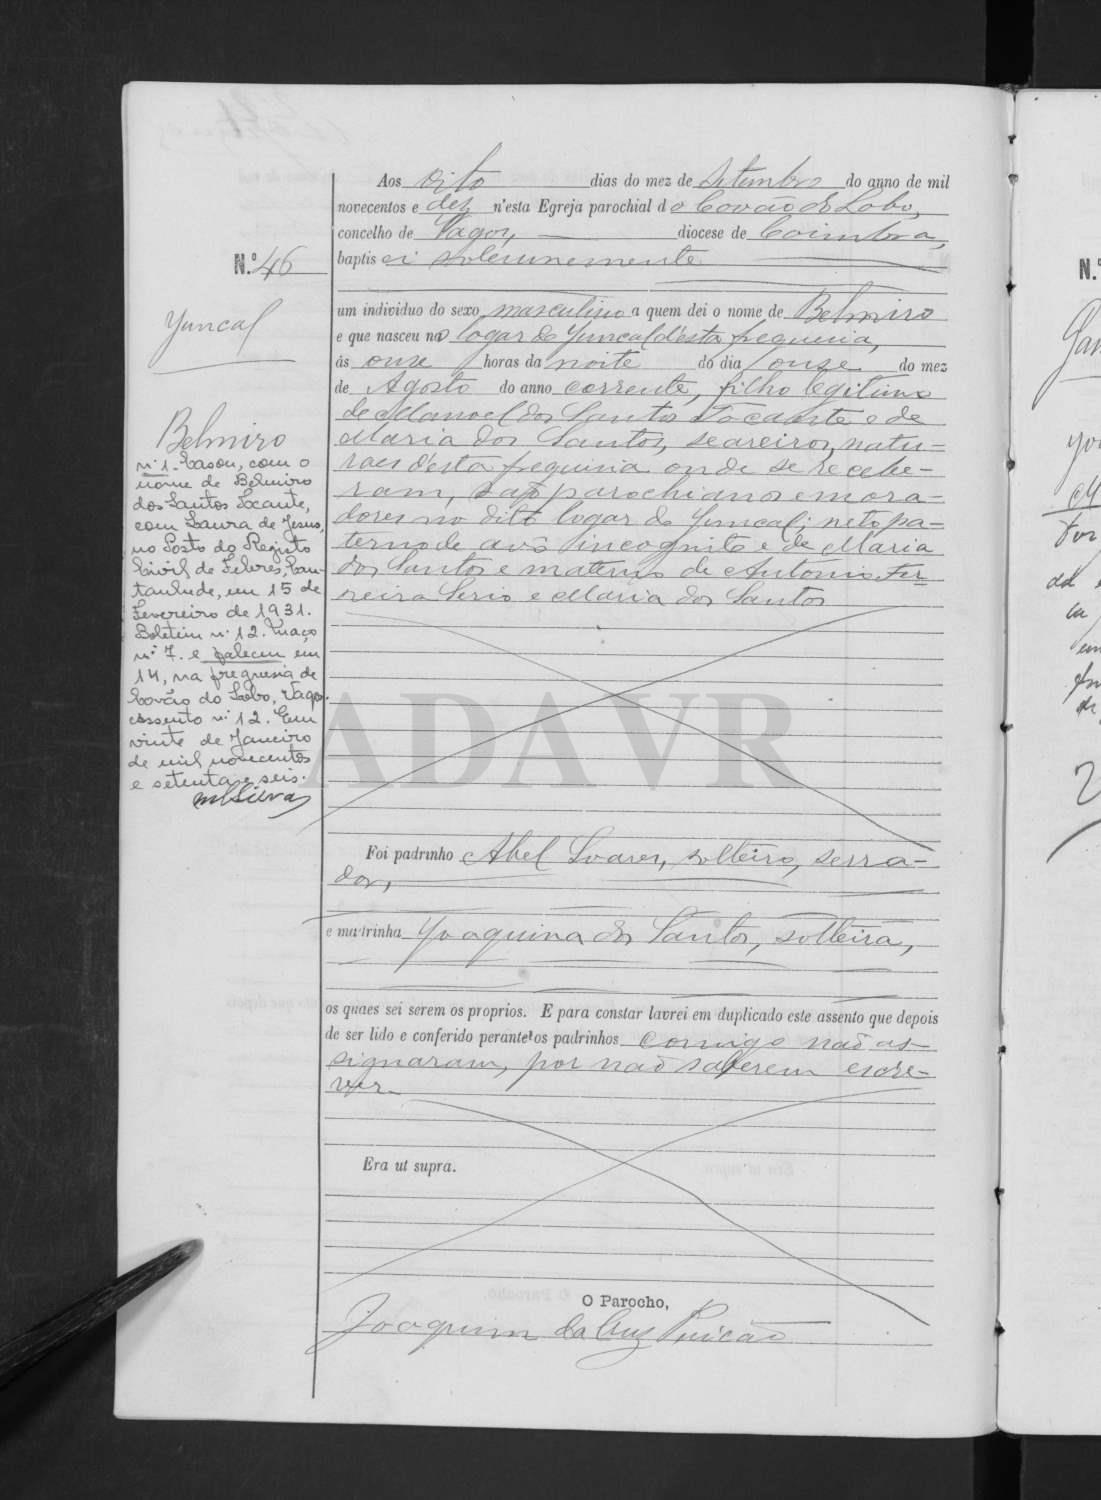 Aos oito dias do mez de Setembro do anno de mil
novecentos e dez n'esta Egreja parochial do Covão do Lobo,
concelho de Vagos, diocese de Coimbra,
baptisei solemnemente
N.º 46
um individuo do sexo masculino a quem dei o nome de Belmiro
e que nasceu no logar do Juncal d'esta freguesia,
ás onze horas da noite do dia onze do mez
de Agosto do anno corrente, filho legitimo
de Manoel dos Santos Tocante e de
Maria dos Santos, seareiros, natu-
raes d'esta freguesia onde se recebe-
ram, são parochianos e mora-
dores no dito logar do Juncal; neto pa-
terno de avô incognito e de Maria
dos Santos e materno de Antonio Fer
reira Serio e Maria dos Santos
Juncal
Belmiro
nº 1. Casou, com o
nome de Belmiro
dos Santos Tocante,
com Laura de Jesus,
no Posto do Registo
Civil de Febres, Can-
tanhede, em 15 de
Fevereiro de 1931.
Boletim nº 12. Maço
nº 7. e faleceu em
14, na freguesia de
Covão do Lobo, Vagos.
assento nº 12. Em
vinte de Janeiro
de mil novecentos
e setenta e seis.
MSilva
ADAVR
Foi padrinho Abel Soares, solteiro, serra-
dor,
e madrinha Joaquina dos Santos, solteira,
os quaes sei serem os proprios. E para constar lavrei em duplicado este assento que depois
de ser lido e conferido perante os padrinhos comigo não as-
signaram, por não saberem escre-
ver.
Era ut supra.
O Parocho,
Joaquim da Cruz
N.º